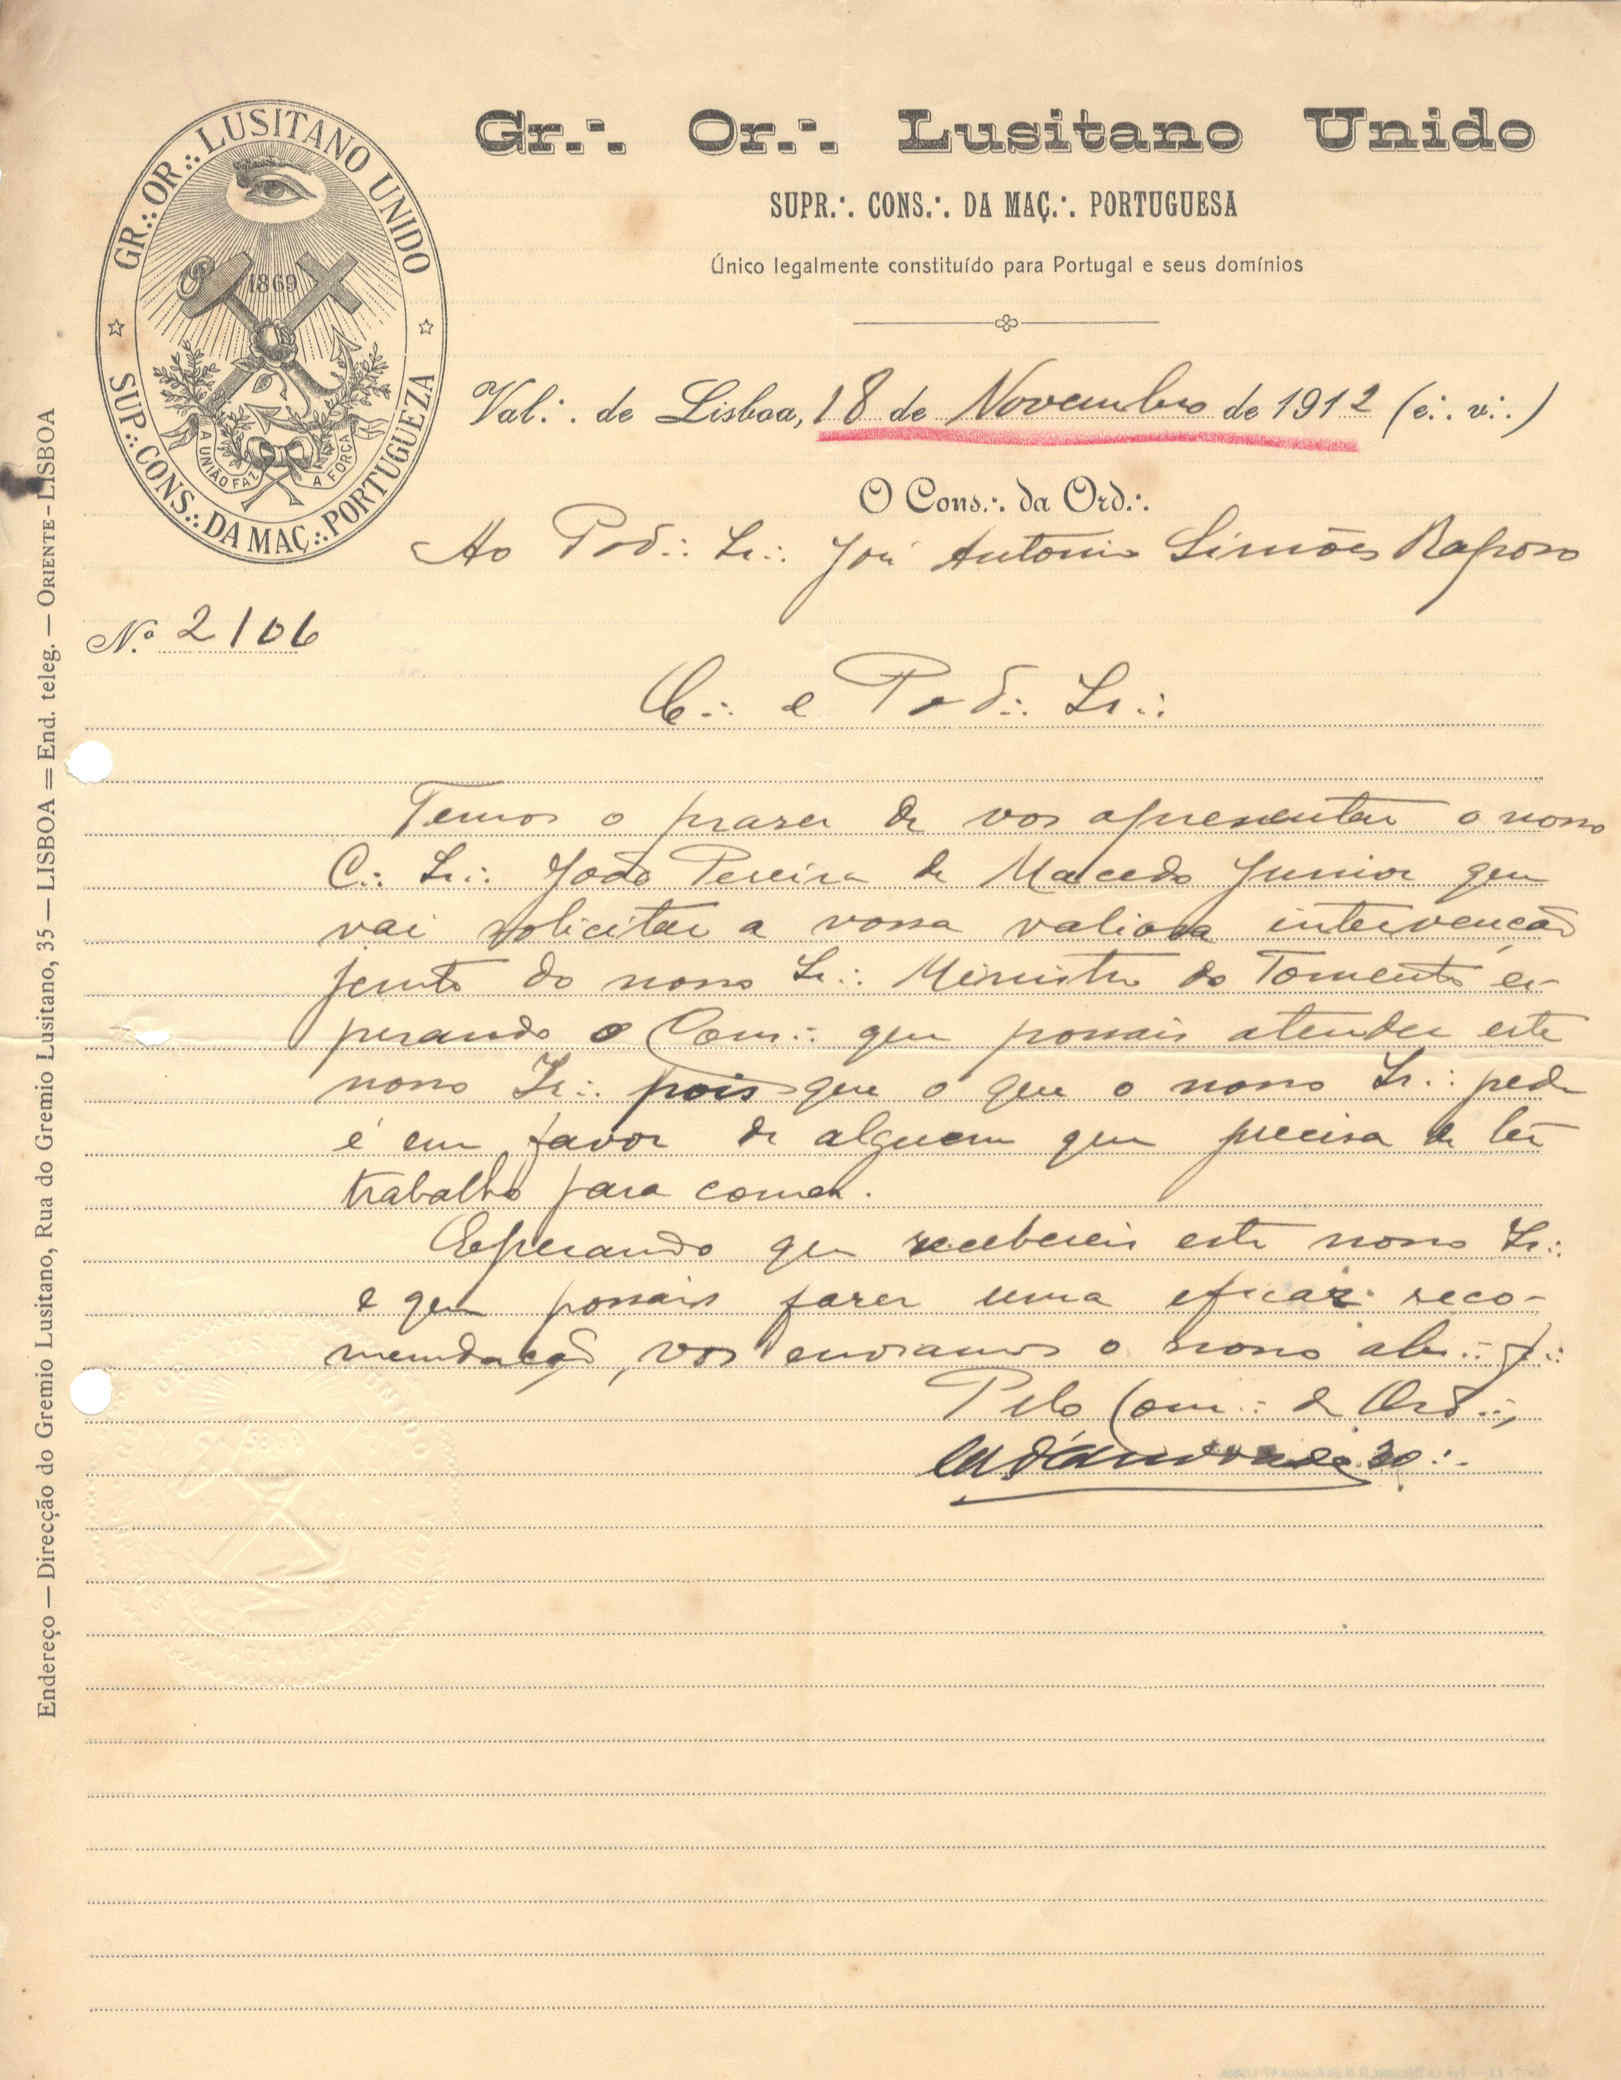 Gr.·. Or.·. Lusitano Unido
SUPR.·. CONS.·. DA MAÇ.·. PORTUGUESA
Único legalmente constituído para Portugal e seus domínios
GR.·. OR.·. LUSITANO UNIDO
1869
A UNIÃO FAZ A FORÇA
SUP.·. CONS.·. DA MAÇ.·. PORTUGUEZA
Val.·. de Lisboa, 18 de Novembro de 1912 (e.·. v.·.)
O Cons.·. da Ord.·.
Ao Pod.·. Ir.·. José Antonio Simões Raposo
N.º 2106
C.·. e Pod.·. Ir.·.
Temos o praser de vos apresentar o nosso
C.·. Ir.·. João Pereira de Macedo Junior que
vai solicitar a vossa valiosa intervenção
junto do nosso Ir.·. Ministro do Fomento es-
perando o Cons.·. que possais atender este
nosso Ir.·. pois que o que o nosso Ir.·. pede
é em favor de alguem que precisa de ter
trabalho para comer.
Esperando que recebereis este nosso Ir.·.
e que possais fazer uma eficaz reco-
mendação, vos enviamos o nosso abr.·. f.·.
Pelo Cons.·. da Ord.·.,
30.·.
Endereço — Direcção do Gremio Lusitano, Rua do Gremio Lusitano, 35 — LISBOA = End. teleg. — ORIENTE-LISBOA